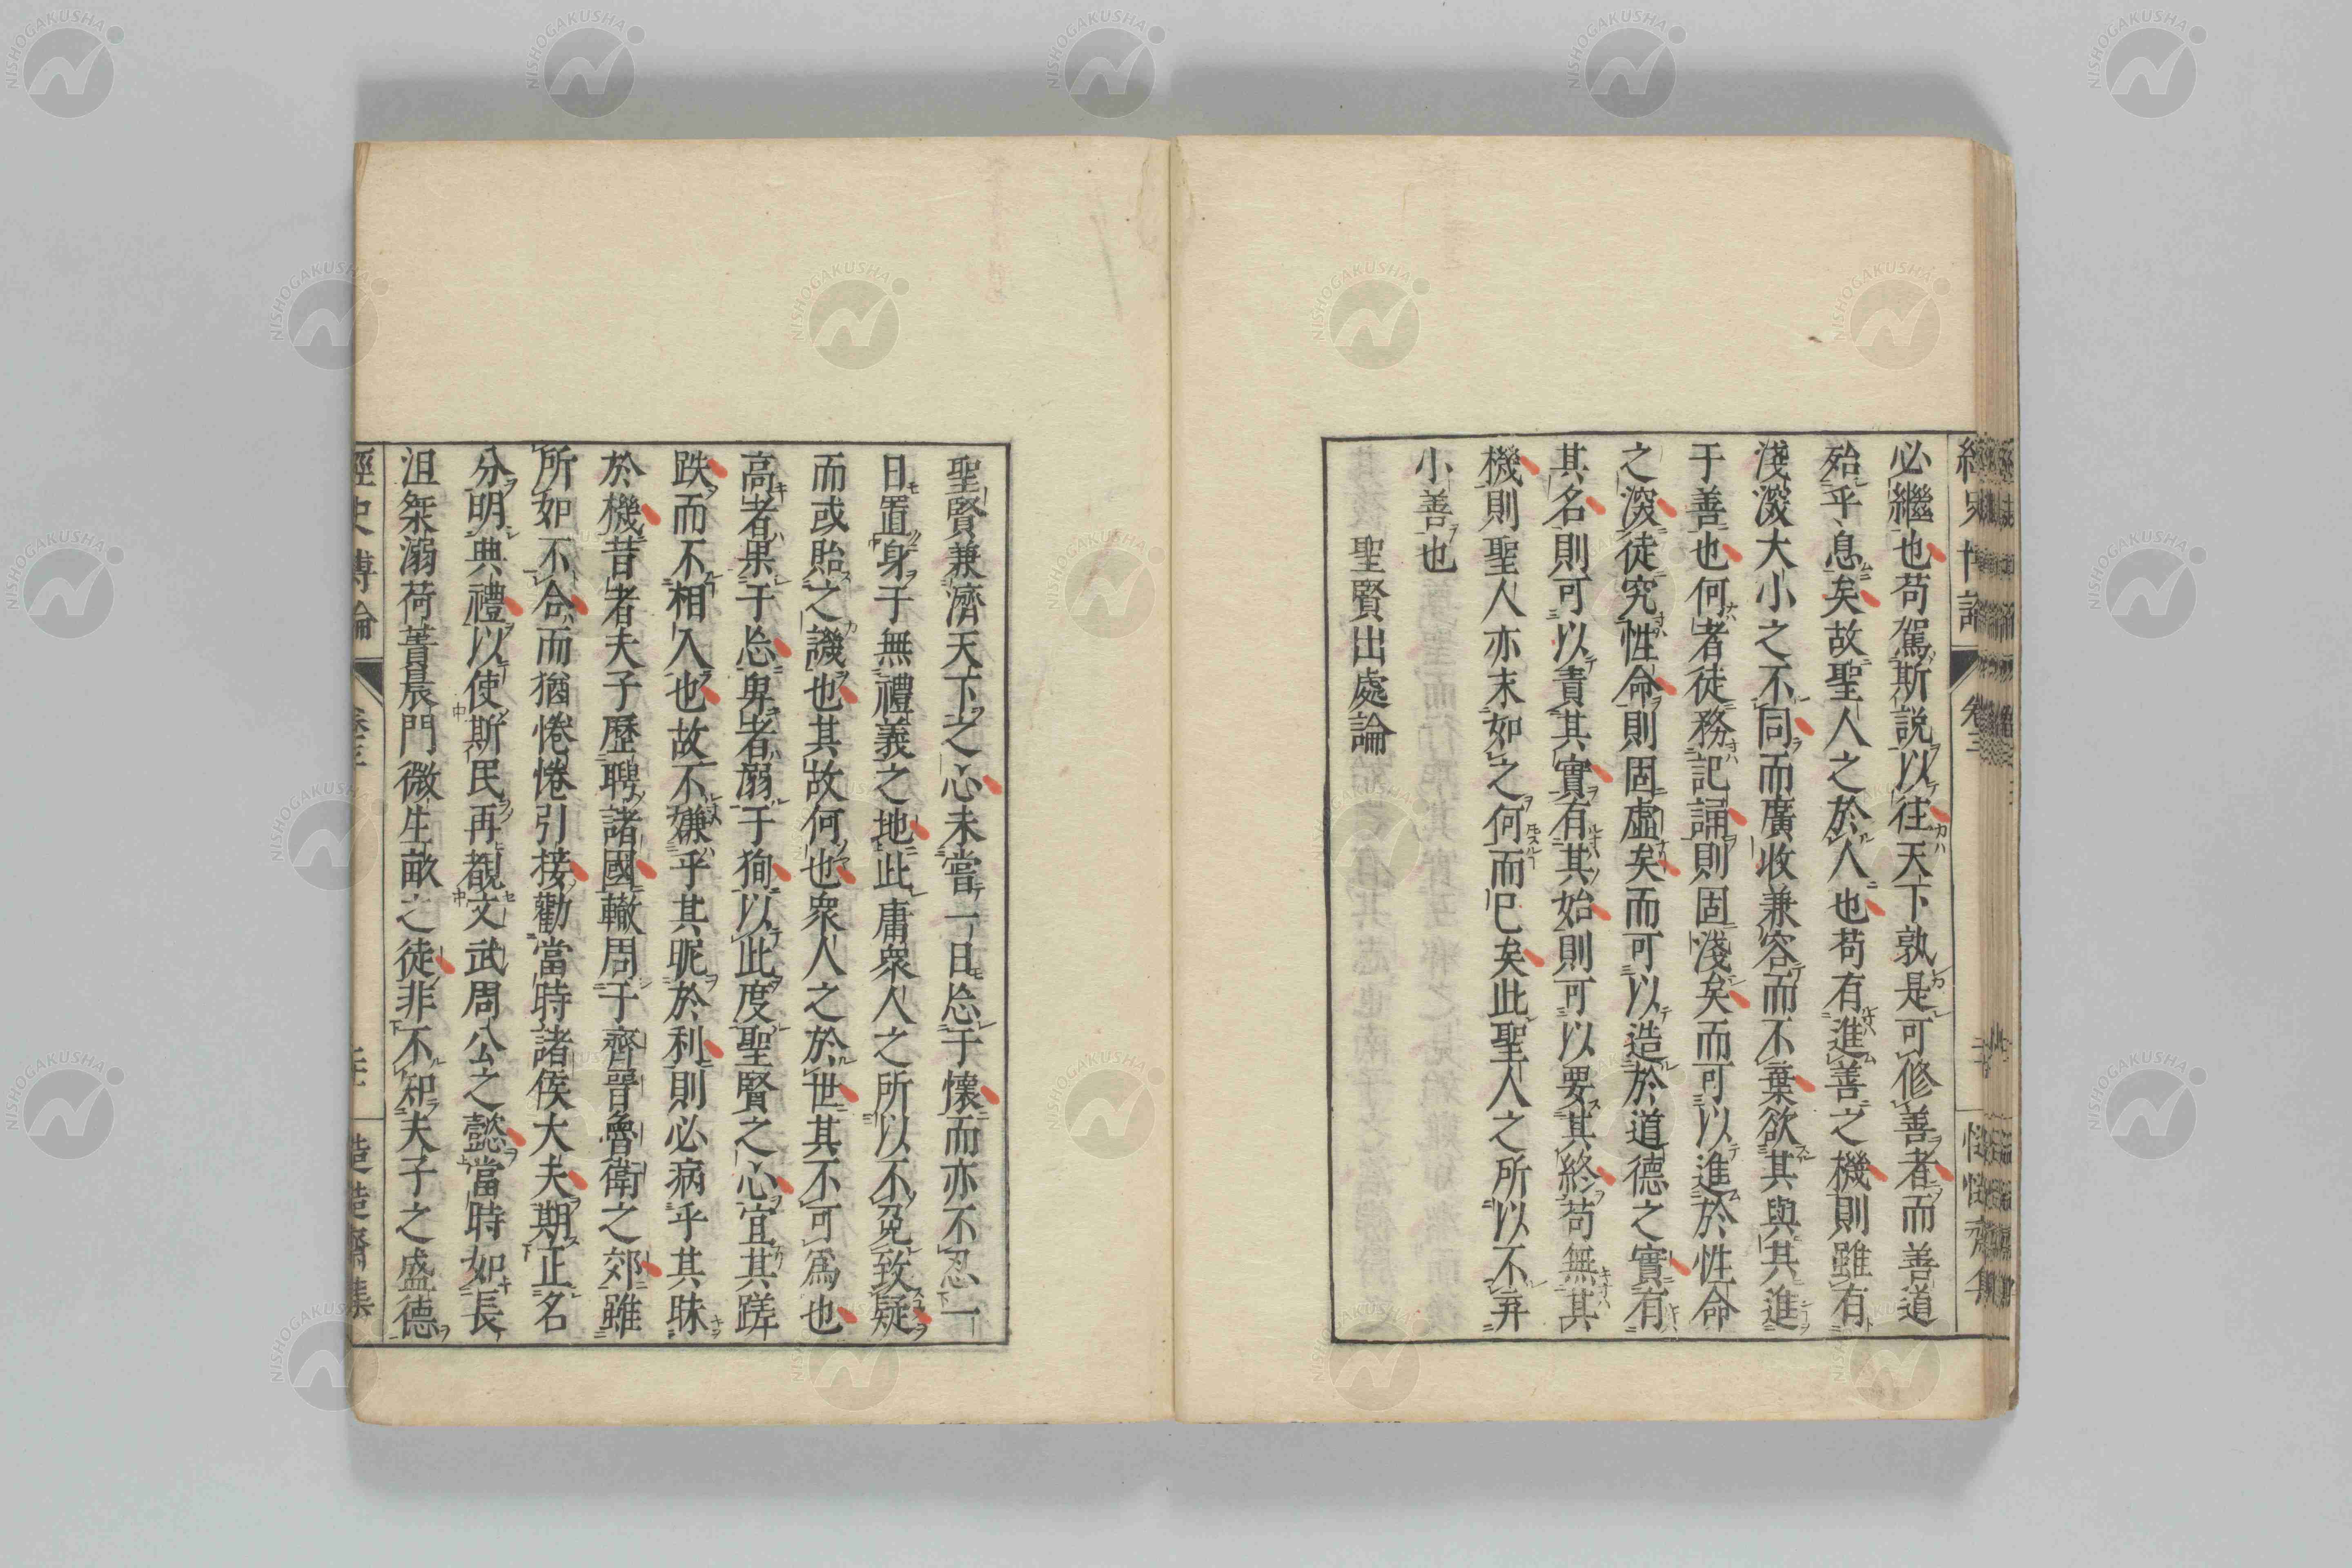 必繼也苟駕斯説以往天下孰是可修善者而善道
殆乎息矣故聖人之於人也苟有進善之機則雖有
淺深大小之不同而廣收兼容而不棄欲其與其進
于善也何者徒務記誦則固淺矣而可以進於性命
之深徒究性命則固虛矣而可以造於道德之實有
其名則可以責其實有其始則可以要其終苟無其
機則聖人亦末如之何而已矣此聖人之所以不弃
小善也
聖賢出處論
聖賢兼濟天下之心未嘗一日忘于懷而亦不忍一
日置身于無禮義之地此庸衆人之所以不免致疑
而或貽之譏也其故何也衆人之於世其不可爲也
高者果于忘卑者溺于狥以此度聖賢之心宜其蹉
跌而不相入也故不嫌乎其昵於利則必病乎其昧
於機昔者夫子歷聘諸國轍周于齊晉魯衛之郊雖
所如不合而猶惓惓引接勸當時諸侯大夫期正名
分明典禮以使斯民再覩文武周公之懿當時如長
沮桀溺荷蕢晨門微生畝之徒非不知夫子之盛德
經史博論
卷三
NISHOGAKUSHA